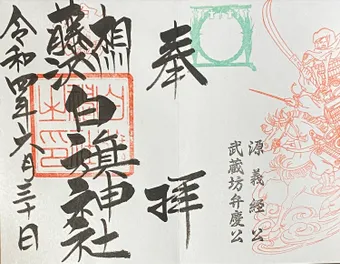 奉拝
源義経公
武蔵坊弁慶公
相州
藤沢
白旗神社
令和四年六月三十日